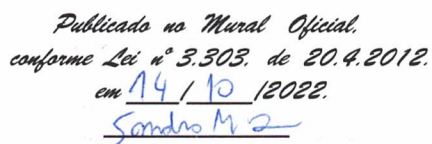 Publicado no Mural Oficial,
conforme Lei nº 3.303, de 20.4.2012.
em 14 / 10 /2022.
Sandro M